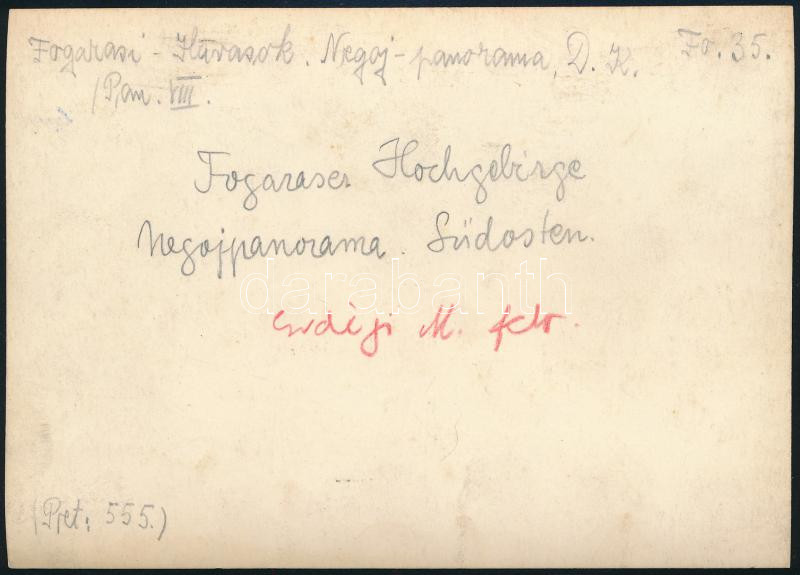 Fogarasi - Havasok. Negoj-panorama, D. K. Fo. 35.
/Pan. VIII.
Fogaraser Hochgebirge
Negojpanorama. Südosten.
darabanth
Erdélyi M. felv.
(Pjet: 555.)